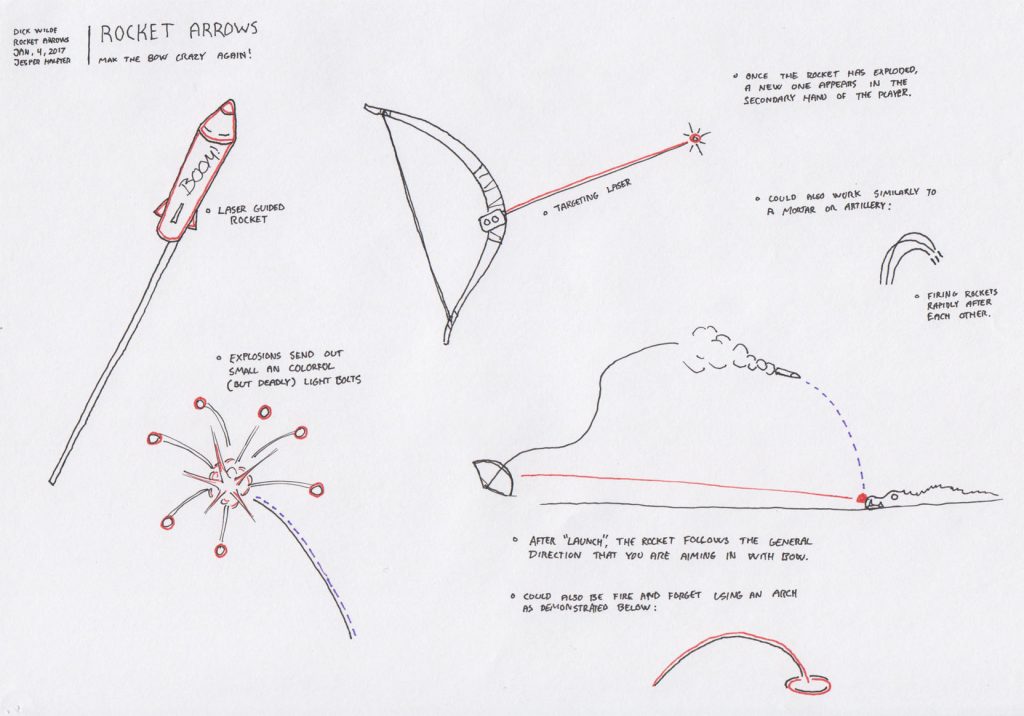 DICK WILDE
ROCKET ARROWS
JAN, 4, 2017
JESPER HALFTER
ROCKET ARROWS
MAK THE BOW CRAZY AGAIN!
BOOM!
• LASER GUIDED
ROCKET
• TARGETING LASER
• ONCE THE ROCKET HAS EXPLODED,
A NEW ONE APPEARS IN THE
SECONDARY HAND OF THE PLAYER.
• COULD ALSO WORK SIMILARLY TO
A MORTAR OR ARTILLERY:
• FIRING ROCKETS
RAPIDLY AFTER
EACH OTHER.
• EXPLOSIONS SEND OUT
SMALL AN COLORFUL
(BUT DEADLY) LIGHT BOLTS
• AFTER "LAUNCH", THE ROCKET FOLLOWS THE GENERAL
DIRECTION THAT YOU ARE AIMING IN WITH BOW.
• COULD ALSO BE FIRE AND FORGET USING AN ARCH
AS DEMONSTRATED BELOW: